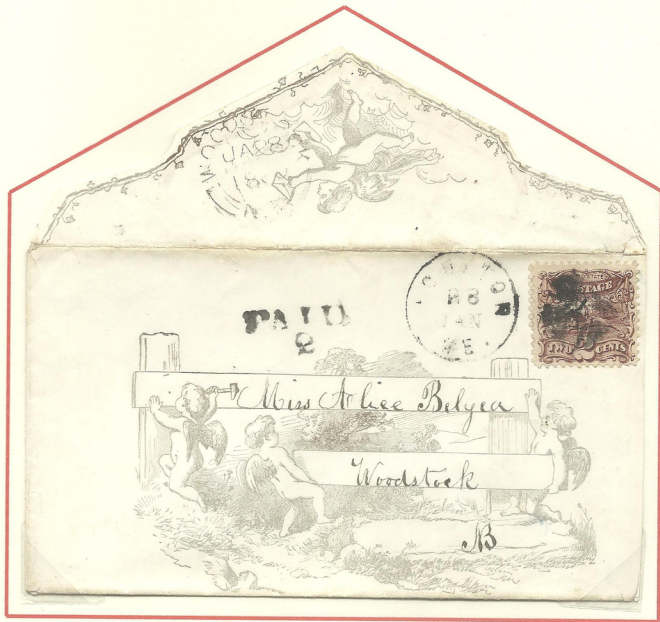 WOODST
JA 28
18
PAID
2
28
JAN
ME
POSTAGE
2
TWO CENTS
Miss Alice Belyea
Woodstock
NB